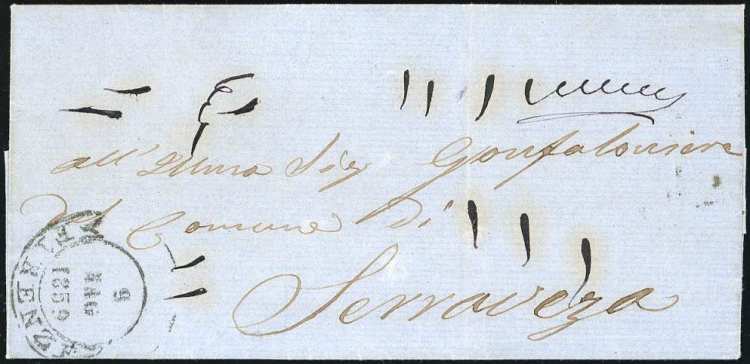 all' Illmo Sig Gonfaloniere
del Comune di
Serraveza
FIRENZE
9
MAG
1859